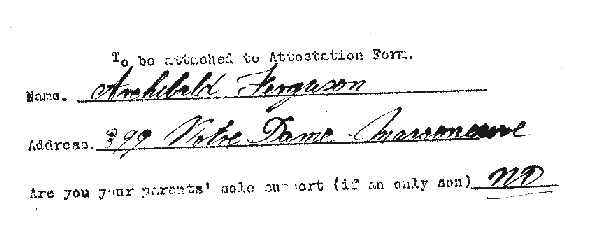 To be attached to Attestation Form.
Name. Archibald Ferguson
Address. 399 Notre Dame Maisonneuve
Are you your parents' sole support (if an only son) NO